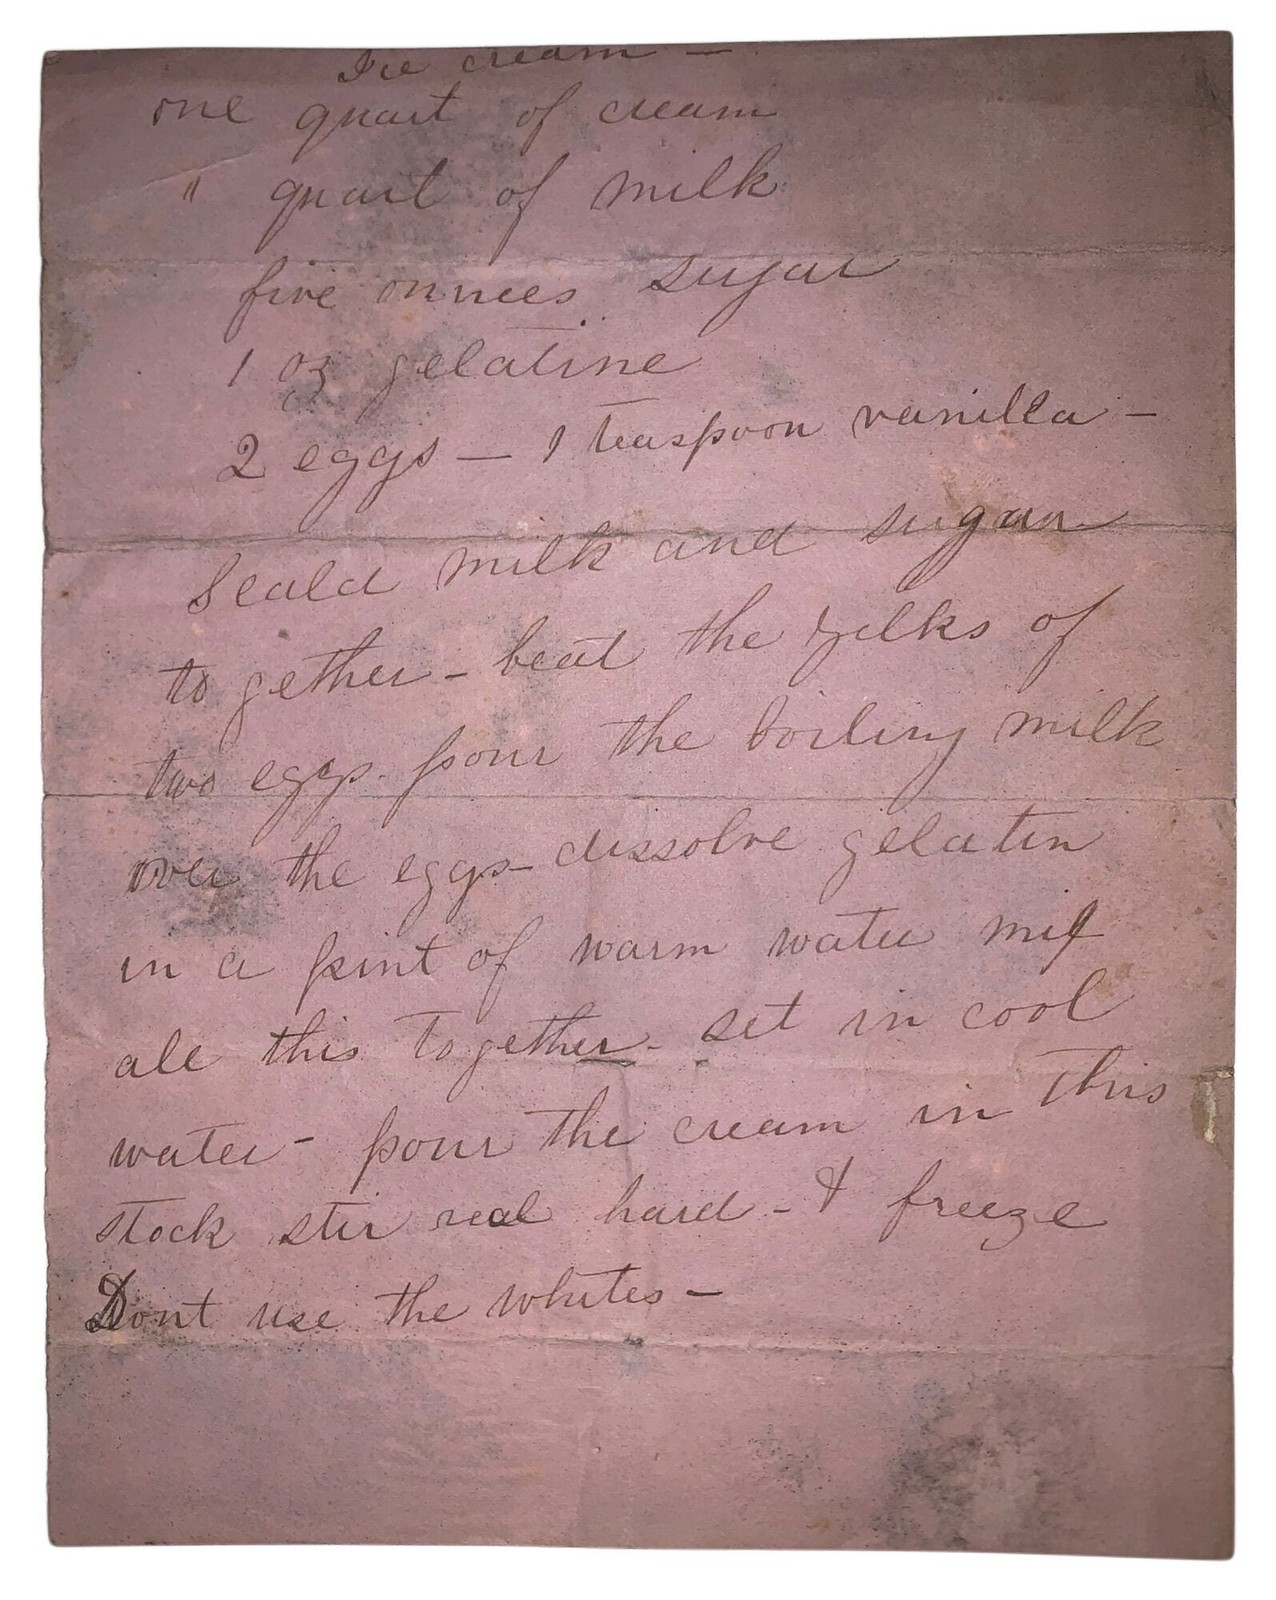 Ice cream —
one quart of cream
" quart of milk
five ounces sugar
1 oz gelatine
2 eggs — 1 teaspoon vanilla —
Scald milk and sugar
to gether - beat the yelks of
two eggs. pour the boiling milk
over the eggs - dissolve gelatin
in a pint of warm water mix
all this together - set in cool
water - pour the cream in this
stock stir real hard - & freeze
Dont use the whites —